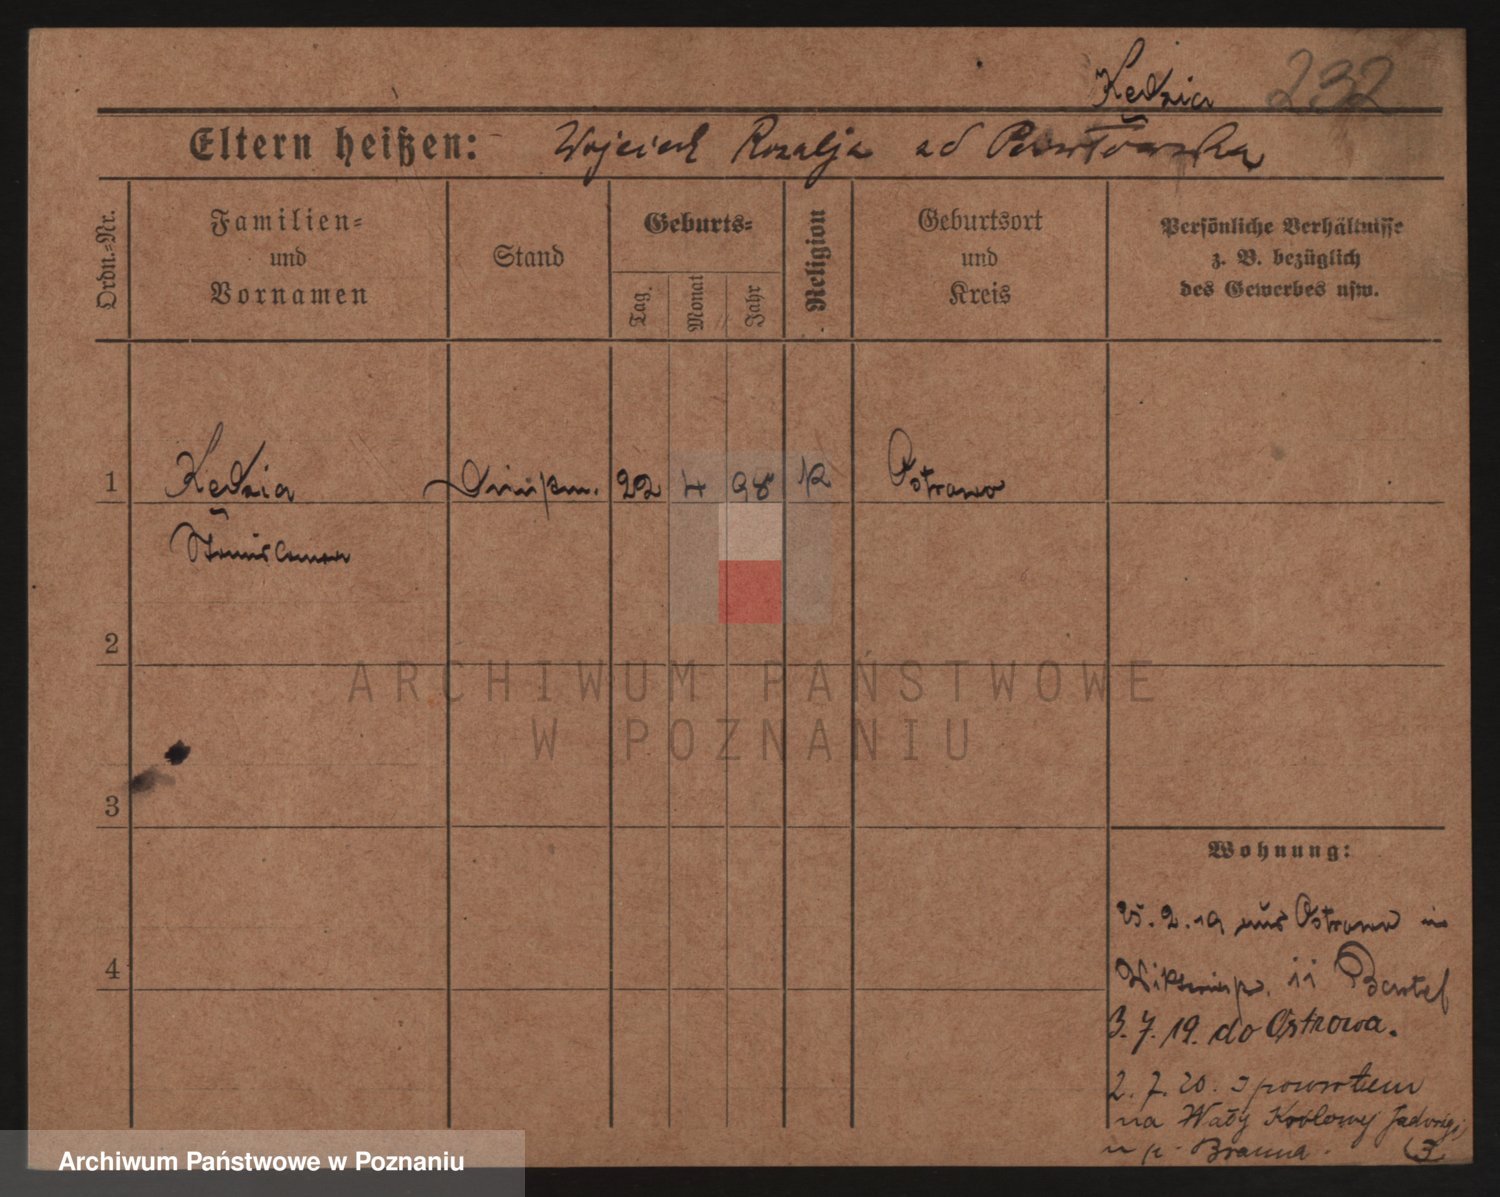 Kędzia 232
Eltern heißen: Wojciech Rozalja ad Pawłowska
Ordn.-Nr.
Familien-
und
Vornamen
Stand
Geburts-
Tag.
Monat
Jahr
Religion
Geburtsort
und
Kreis
Persönliche Verhältnisse
z. B. bezüglich
des Gewerbes usw.
1 Kędzia 22 4 98 k Ostrowo
Stanislawa
2
ARCHIWUM PAŃSTWOWE
W POZNANIU
3
Wohnung:
25. 2. 19 aus Ostrowo in
11 Bartel
4
3. 7. 19. do Ostrowa.
2. 7. 20. z powrotem
na Wały Królowej Jadwigi
u p. Brauna. 3
Archiwum Państwowe w Poznaniu